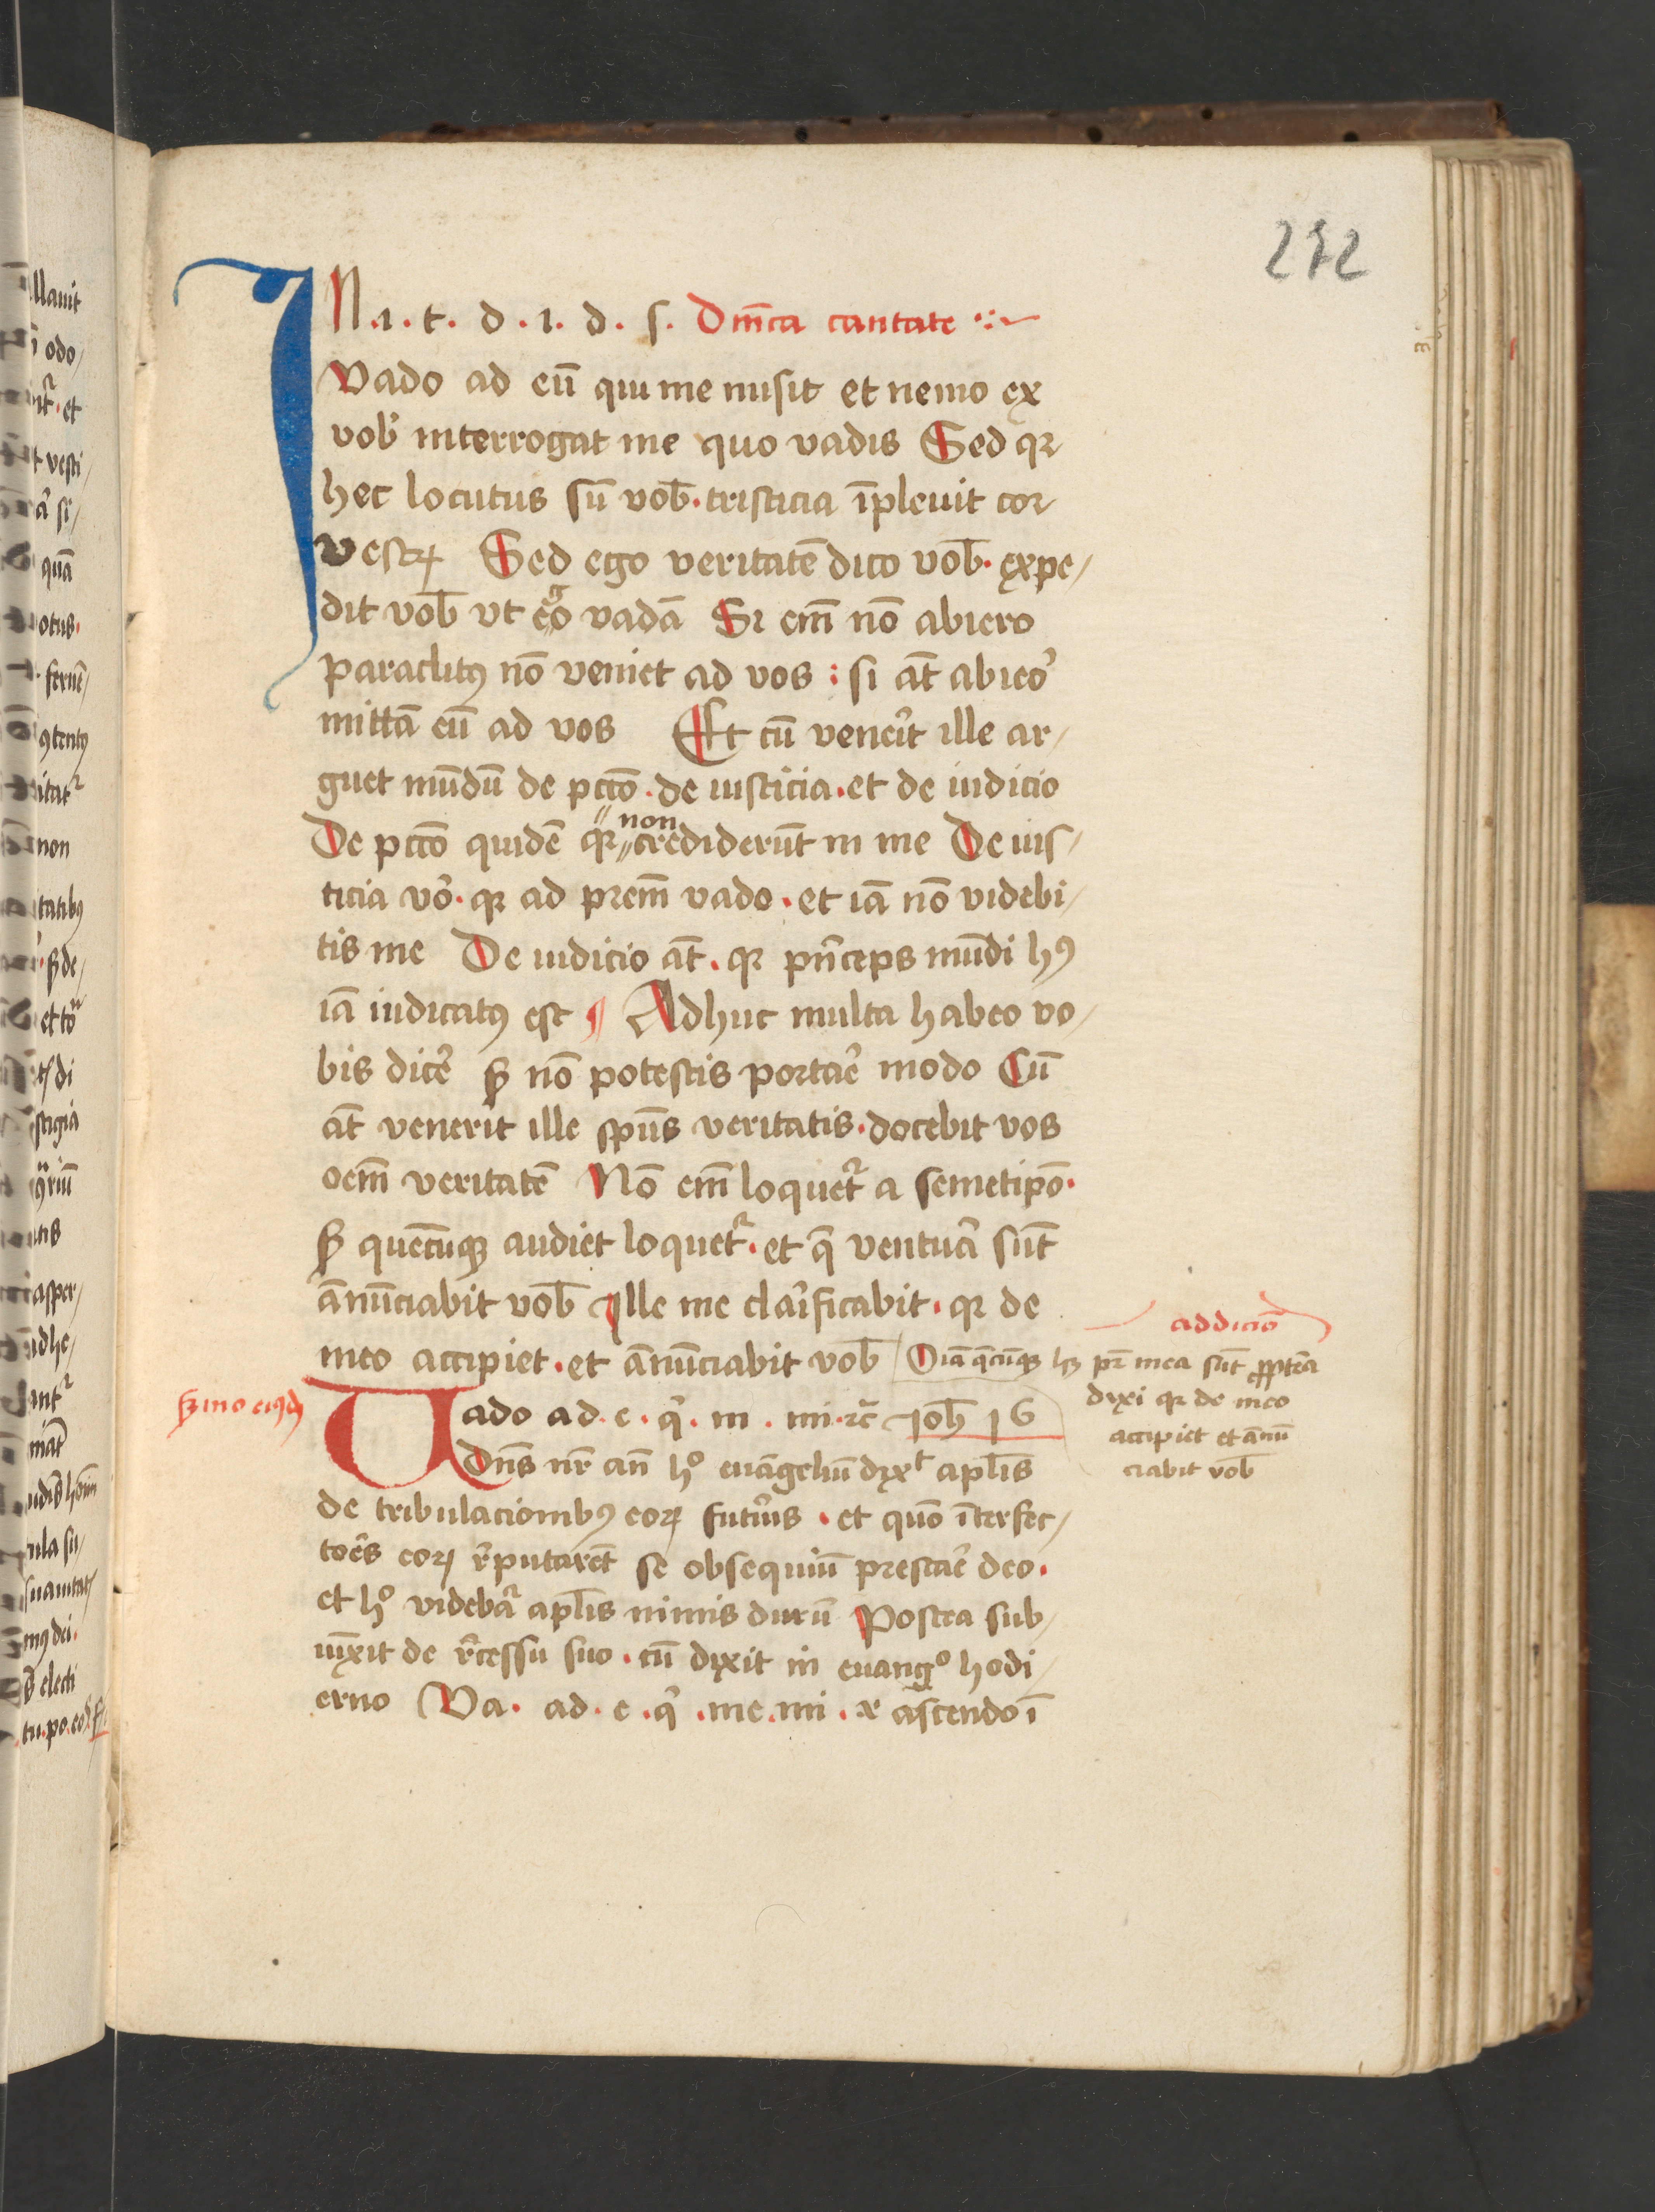 272
IN .i. t. d. i. d. s. Dn̄ica cantate
Vado ad eū qui me misit et nemo ex
vob̕ interrogat me quo vadis Sed qꝛ
hec locutus sū vob̄. tristicia īpleuit cor
vestrꝝ Sed ego veritatē dico vob̄. expe/
dit vob̄ vt ego vadā Si em̄ nō abiero
paraclitꝯ nō veniet ad vos : si at̄ abieo̕
mittā eū ad vos Et cū vene̕it ille ar/
guet mūdū de pctō. de iusticia. et de iudicio
De pctō quidē qꝛ non crediderūt in me De ius/
ticia vo̕. qꝛ ad prem̄ vado. et iā nō videbi/
tis me De iudicio at̄. qꝛ pn̕ceps mūdi hꝯ
iā iudicatꝯ est ¶ Adhuc multa habeo vo/
bis dice̕ sꝫ nō potestis portae̕ modo Cū
at̄ venerit ille spūs veritatis. docebit vos
oem̄ veritatē Nō em̄ loquet̕ a semetipō.
sꝫ quecūqꝫ audiet loquet̕. et q̄ ventua̕ sūt
ānūciabit vob̄ Ille me clai̕ficabit. qꝛ de
meo accipiet. et ānūciabit vob̄ Oīa q̄cūqꝫ hꝫ pr̄ mea sūt ꝓpterea
addicio
dixi qꝛ de meo
accipiet et ānū
ciabit vob̄
sꝫmo eiꝰdꝫ
Uado ad. e. q̕. m. mi. ꝛc̄ Joh̄ 16
Dn̄s nr̄ an̄ hº euāgeliū dixᵗ apl̄is
de tribulacionibꝯ eoꝝ futu̕is. et quō īterfec/
toe̕s eoꝝ r̕putarēt se obsequiū prestae̕ deo.
et hº videba̕ apl̄is nimis durū Postea sub/
iūxit de r̕cessu suo. cū dixit in euangº hodi/
erno Va. ad. e. q̕. me. mi. ꝛ ascendo ī